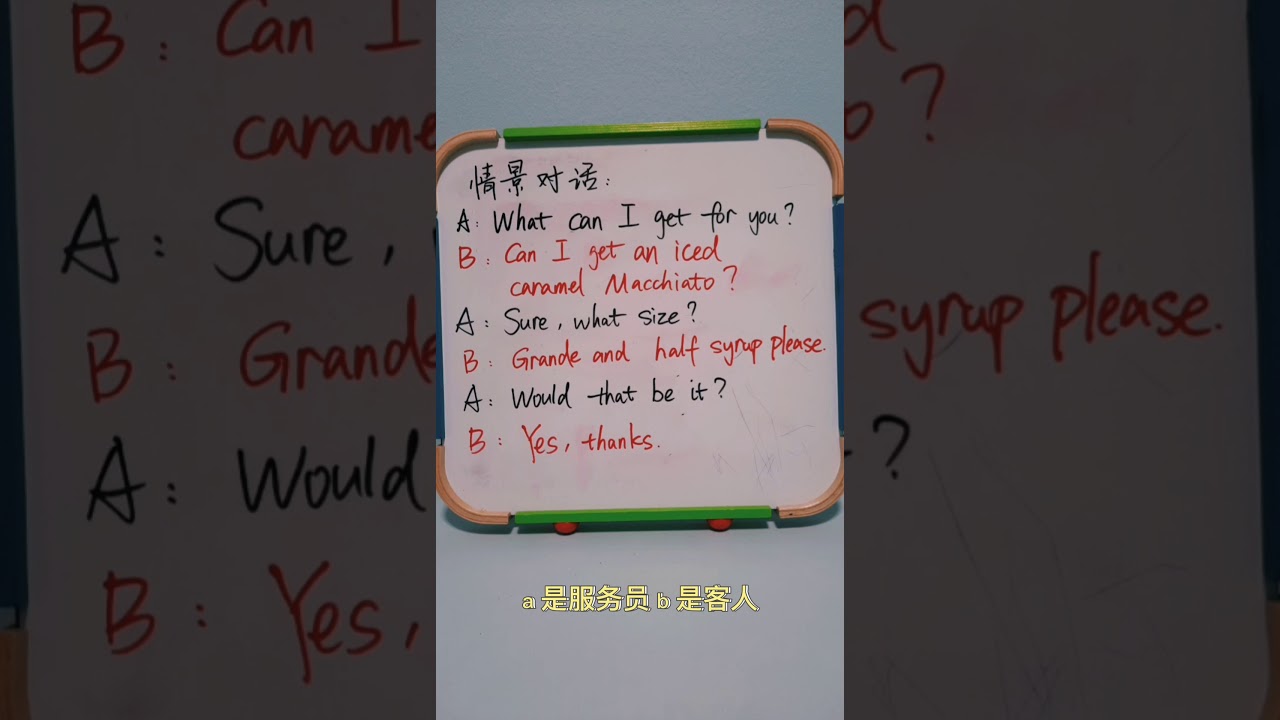 情景对话:
A: What can I get for you?
B: Can I get an iced
caramel Macchiato?
A: Sure, what size?
B: Grande and half syrup please.
A: Would that be it?
B: Yes, thanks.
a 是服务员 b 是客人